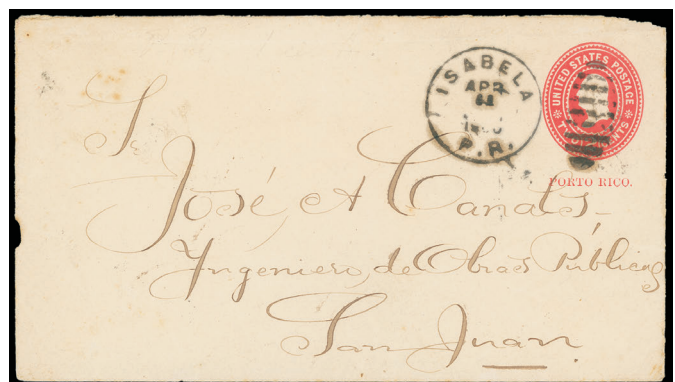 ISABELA
APR
P.R.
UNITED STATES POSTAGE
PORTO RICO.
S.
José A Canals-
Ingeniero de Obras Públicas
San Juan